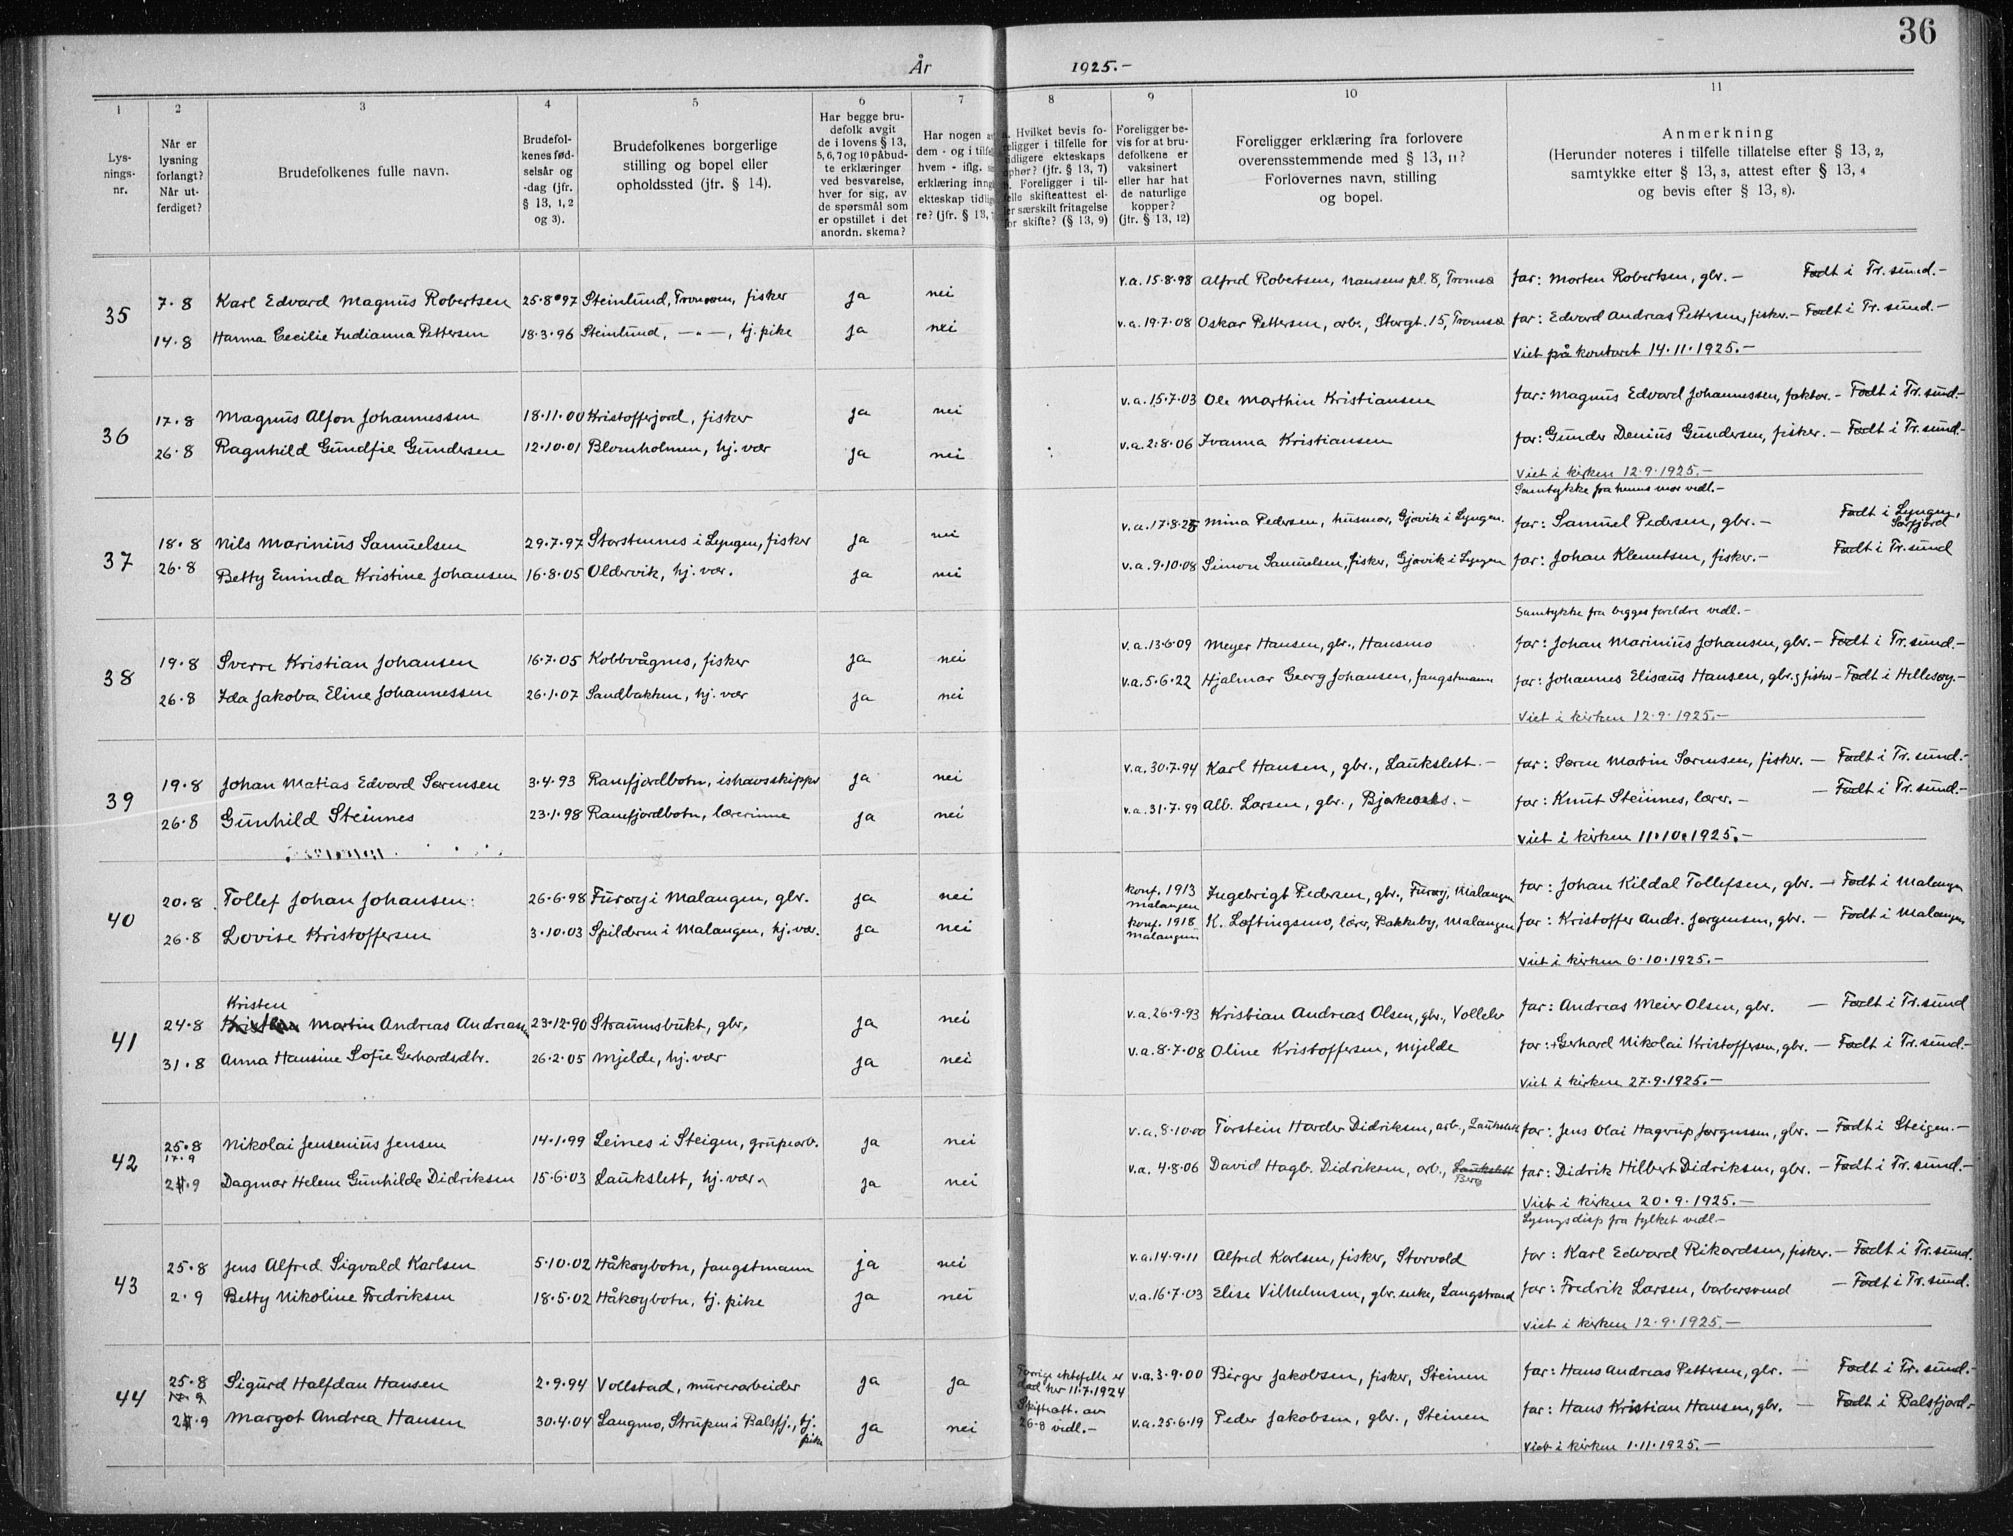 36
År 1925.-
1 2 3 4 5 6 7 8 9 10 11
Lys-
nings-
nr.
Når er
lysning
forlangt?
Når ut-
ferdiget?
Brudefolkenes fulle navn.
Brudefol-
kenes fød-
selsår og
-dag (jfr.
§ 13, 1, 2
og 3).
Brudefolkenes borgerlige
stilling og bopel eller
opholdssted (jfr. § 14).
Har begge bru-
defolk avgit
de i lovens § 13,
5, 6, 7 og 10 påbud-
te erklæringer
ved besvarelse,
hver for sig, av
de spørsmål som
er opstillet i det
anordn. skema?
Har nogen
dem - og i tilfel
hvem - iflg.
erklæring inng
ekteskap tidlig
re? (jfr. § 13,
Hvilket bevis fo-
religger i tilfelle for
tidligere ekteskaps
ophør? (jfr. § 13, 7)
Foreligger i til-
felle skifteattest el-
er særskilt fritagelse
for skifte? (§ 13, 9)
Foreligger be-
vis for at bru-
defolkene er
vaksinert
eller har hat
de naturlige
kopper?
(jfr. § 13, 12)
Foreligger erklæring fra forlovere
overensstemmende med § 13, 11?
Forlovernes navn, stilling
og bopel.
Anmerkning
(Herunder noteres i tilfelle tillatelse efter § 13, 2,
samtykke efter § 13, 3, attest efter § 13, 4
og bevis efter § 13, 8).
35 7.8 Karl Edvard Magnus Robertsen 25.8.97 Steinlund, Tromsøm, fisker ja nei v.a.15.8.98 Alfred Robertsen, Nansens pl. 8, Tromsø far: Morten Robertsen, gbr. - Født i Tr.sund.-
14.8 Hanna Cecilie Indianna Pettersen 18.3.96 Steinlund, -"-, tj. pike ja nei v.a.19.7.08 Oskar Pettersen, arb., Storgt. 15, Tromsø far: Edvard Andreas Pettersen, fisker.- Født i Tr.sund.-
Viet på kontoret 14.11.1925.-
36 17.8 Magnus Alfon Johannessen 18.11.00 Kristofferjord, fisker ja nei v.a.15.7.03 Ole Marthin Kristiansen far: Magnus Edvard Johannessen, faktor. - Født i Tr.sund.-
26.8 Ragnhild Gundfie Gundersen 12.10.01 Blomholmen, hj. vær ja nei v.a.2.8.06 Ivanna Kristiansen far: Gunder Denius Gundersen, fisker. - Født i Tr.sund.-
Viet i kirken 12.9.1925.-
Samtykke fra hennes mor vedl.-
37 18.8 Nils Marinius Samuelsen 29.7.97 Storstennes i Lyngen, fisker ja nei v.a.17.8.25 Mina Pedersen, husmor, Gjøvik i Lyngen. far: Samuel Pedersen, gbr. - Født i Lyngen,
Sørfjord
26.8 Betty Eminda Kristine Johansen 16.8.05 Oldervik, hj. vær. ja nei v.a.9.10.08 Simon Samuelsen, fisker, Gjøvik i Lyngen far: Johan Klemetsen, fisker.- Født i Tr.sund
Samtykke fra begges foreldre vedl.-
38 19.8 Sverre Kristian Johansen 16.7.05 Kobbvågnes, fisker ja nei v.a.13.6.09 Meyer Hansen, gbr., Hansmo far: Johan Marinius Johansen, gbr. - Født i Tr.sund.-
26.8 Ida Jakoba Eline Johannessen 26.1.07 Sandbakken, hj. vær ja nei v.a.5.6.22 Hjalmar Georg Johansen, fangstmann far: Johannes Elisæus Hansen, gbr. & fisker - Født i Hillesøy.-
Viet i kirken 12.9.1925.-
39 19.8 Johan Matias Edvard Sørensen 3.4.93 Ramfjordbotn, ishavsskipper ja nei v.a.30.7.94 Karl Hansen, gbr., Laukslett.- far: Søren Martin Sørensen, fisker. - Født i Tr.sund.-
26.8 Gunhild Steinnes 23.1.98 Ramfjordbotn, lærerinne ja nei v.a.31.7.99 Alb. Larsen, gbr., Bjørkenes. - far: Knut Steinnes, lærer. - - Født i Tr.sund.-
Viet i kirken 11.10.1925.-
40 20.8 Tollef Johan Johansen 26.6.98 Furøy i Malangen, gbr. ja nei konf. 1913
Malangen Ingebrigt Pedersen, gbr., Furøy, Malangen far: Johan Kildal Tollefsen, gbr. - Født i Malangen
26.8 Lovise Kristoffersen 3.10.03 Spilderen i Malangen, hj. vær. ja nei konf. 1918
Malangen K. Løftingsmo, lærer, Bakkeby, Malangen far: Kristoffer Andr. Jørgensen, gbr. - Født i Malangen
Viet i kirken 6.10.1925.-
Kristen
41 24.8 Martin Andreas Andreassen 23.12.90 Straumsbukt, gbr. ja nei v.a.26.9.93 Kristian Andreas Olsen, gbr., Vollelv far: Andreas Meier Olsen, gbr. - Født i Tr.sund
31.8 Anna Hansine Sofie Gerhardsdtr. 26.2.05 Mjelde, hj. vær ja nei v.a.8.7.08 Oline Kristoffersen, Mjelde far: + Gerhard Nikolai Kristoffersen, gbr. - Født i Tr.sund.-
Viet i kirken 27.9.1925.-
42 25.8
17.9 Nikolai Jensenius Jensen 14.1.99 Leines i Steigen, grupearb. ja nei v.a.8.10.00 Torstein Harder Didriksen, arb., Laukslett far: Jens Olai Hagrup Jørgensen, gbr. - Født i Steigen.-
21.9 Dagmar Helene Gunhilde Didriksen 15.6.03 Laukslett, hj. vær. ja nei v.a. 4.8.06 David Hagb. Didriksen, arb., Laukslett
Berg far: Didrik Hilbert Didriksen, gbr. - Født i Tr.sund.-
Viet i kirken 20.9.1925.-
Lysningsdisp fra fylket vedl.-
43 25.8 Jens Alfred Sigvald Karlsen 5.10.02 Håkøybotn, fangstmann ja nei v.a.14.9.11 Alfred Karlsen, fisker, Storvold far: Karl Edvard Rikardsen, fisker. - Født i Tr.sund.
2.9 Betty Nikoline Fredriksen 18.5.02 Håkøybotn, tj. pike ja nei v.a.16.7.03 Elise Vilhelmsen, gbr. enke, Langstrand far: Fredrik Larsen, barbersvend - Født i Tr.sund.
Viet i kirken 12.9.1925.-
44 25.8
17.9 Sigurd Halfdan Hansen 2.9.94 Vollstad, murerarbeider ja ja Forrige ektefelle er
død her 11.7.1924
Skifteatt. av
26.8 vedl.- v.a.3.9.00 Birger Jakobsen, fisker, Steinen far: Hans Andreas Pettersen, gbr. - Født i Tr.sund.-
21.9 Margot Andrea Hansen 30.4.04 Langmo, Strupen i Balsfj., tj.
pike ja nei v.a.25.6.19 Peder Jakobsen, gbr., Steinen far: Hans Kristian Hansen, gbr. - Født i Balsfjord.-
Viet i kirken 1.11.1925.-